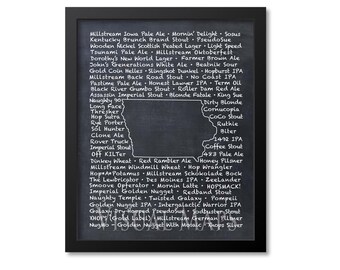 Millstream Iowa Pale Ale • Mornin' Delight • Sosus
Kentucky Brunch Brand Stout • PseudoSue
Wooden Nickel Scottish Peated Lager • Light Speed
Tsunami Pale Ale • Millstream Oktoberfest
Dorothy's New World Lager • Farmer Brown Ale
John's Generations White Ale • Beatnik Sour
Gold Coin Helles • Slingshot Dunkel • Hopburst IPA
Millstream Back Road Stout • No Coast IPA
Pastime Pale Ale • Honest Lawyer IPA • Term Oil
Black River Gumbo Stout • Roller Dam Red Ale
Assassin Imperial Stout • Blonde Fatale • King Sue
Naughty 90 Dirty Blonde
Long Face Cornucopia
Thresher CoCo Stout
Hop Sutra Ruthie
Rye Porter Biter
Sol Hunter 1492 IPA
Clone Ale Coffee Stout
Rover Truck 483 Pale Ale
Imperial Stout
Off KILTer
Dinkey Wheat • Red Rambler Ale • Honey Pilsner
Millstream Windmill Wheat • Hop Wrangler
Hop-A-Potamus • Millstream Schokolade Bock
The Lewdrictor • Des Moines IPA • Zeelander
Smoove Operator • Mornin Latte • HOPSHACK!
Imperial Golden Nugget • Redband Stout
Naughty Temple • Twisted Galaxy • Pompeii
Golden Nugget • Intergalactic Warrior IPA